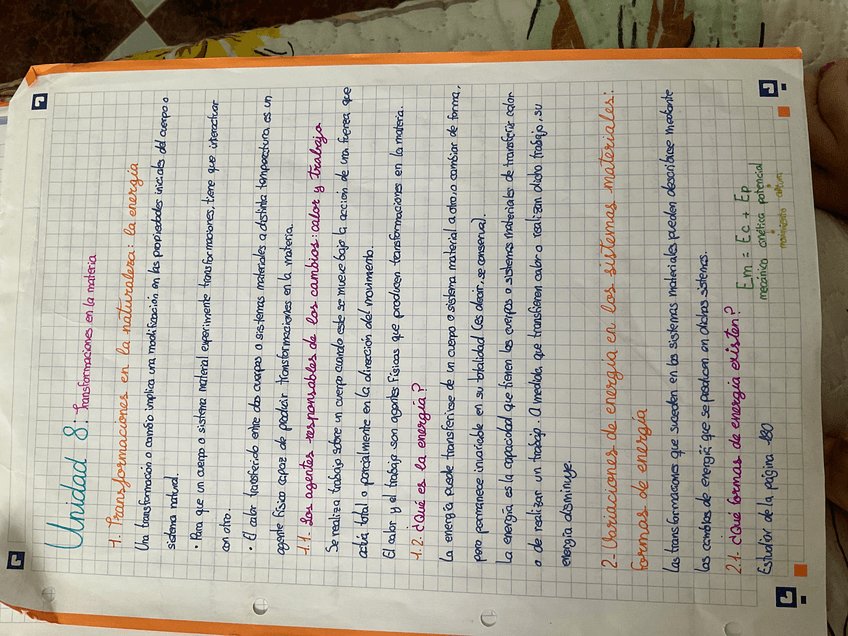 Unidad 8: Transformaciones en la materia
1. Transformaciones en la naturaleza: la energía
Una transformación o cambio implica una modificación en las propiedades iniciales del cuerpo o
sistema natural.
• Para que un cuerpo o sistema material experimente transformaciones, tiene que interactuar
con otro.
• El calor transferido entre dos cuerpos o sistemas materiales a distinta temperatura es un
agente físico capaz de producir transformaciones en la materia.
1.1. Los agentes responsables de los cambios: calor y trabajo
Se realiza trabajo sobre un cuerpo cuando este se mueve bajo la acción de una fuerza que
actúa total o parcialmente en la dirección del movimiento.
El calor y el trabajo son agentes físicos que producen transformaciones en la materia.
1.2. ¿Qué es la energía?
La energía puede transferirse de un cuerpo o sistema material a otro, o cambiar de forma,
pero permanece invariable en su totalidad (es decir, se conserva).
La energía es la capacidad que tienen los cuerpos o sistemas materiales de transferir calor
o de realizar un trabajo. A medida que transfieren calor o realizan dicho trabajo, su
energía disminuye.
2. Variaciones de energía en los sistemas materiales:
formas de energía
Las transformaciones que suceden en los sistemas materiales pueden describirse mediante
los cambios de energía que se producen en dichos sistemas.
2.1. ¿Qué formas de energía existen?
Em = Ec + Ep
mecánica cinética potencial
movimiento altura
Estudiar de la página 180